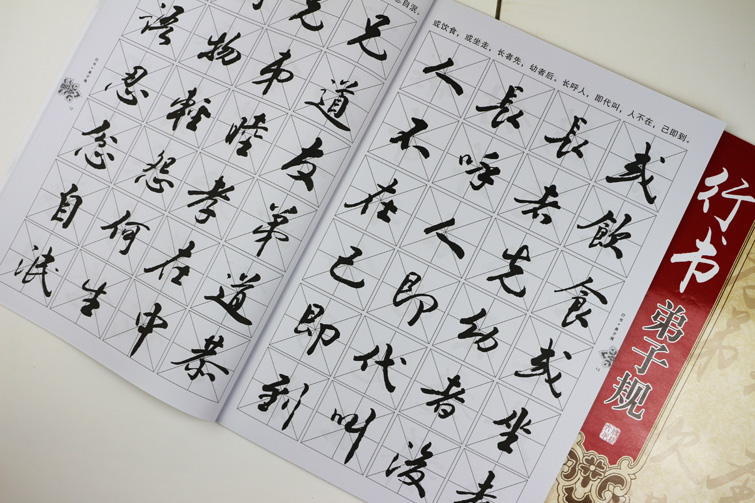 忿自泯。
兄道友弟道恭
兄弟睦孝在中
物輕怨何生
語忍忿自泯
或饮食，或坐走，长者先，幼者后。长呼人，即代叫，人不在，己即到。
或飲食或坐走
長者先幼者後
長呼人即代叫
人不在己即到
行书
弟子规